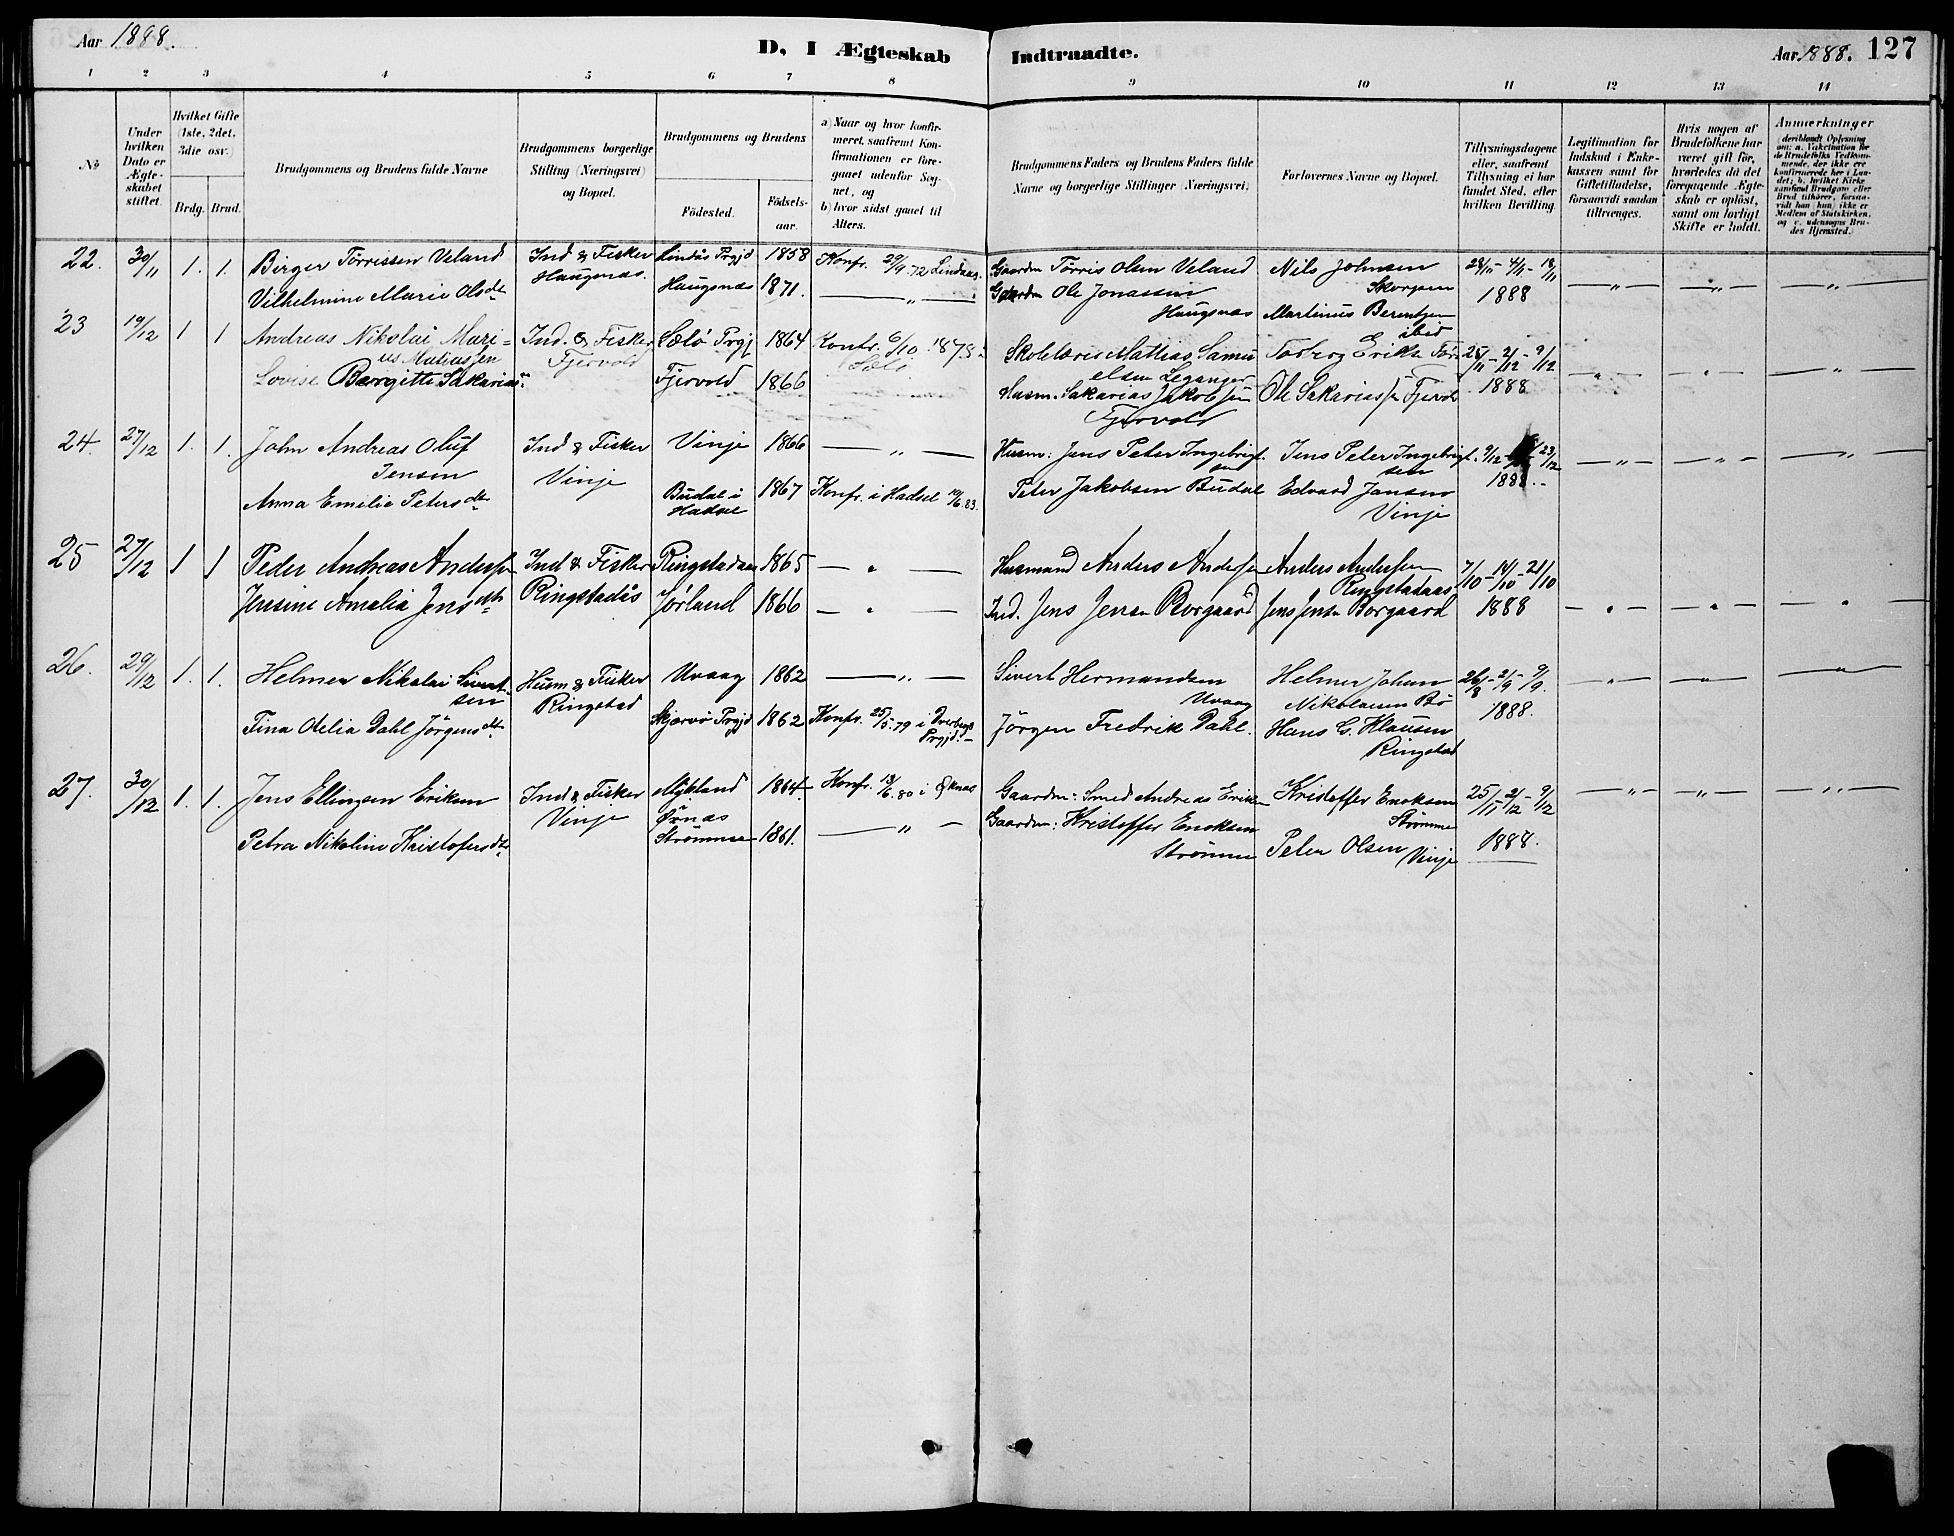 Aar 1888.
D, I Ægteskab Indtraadte.
Aar 1888. 127
1 2 3 4 5 6 7 8 9 10 11 12 13 14
No
Under hvilken Dato er Ægteskabet stiftet.
Hvilket Gifte (1ste, 2det, 3die osv.)
Brdg. Brud.
Brudgommens og Brudens fulde Navne
Brudgommens borgerlige Stilling (Næringsvei) og Bopæl.
Brudgommens og Brudens
Födested.
Födselsaar.
a) Naar og hvor konfirmeret, saafremt Konfirmationen er foregaaet udenfor Sognet, og
b) hvor sidst gaaet til Alters.
Brudgommens Faders og Brudens Faders fulde Navne og borgerlige Stillinger (Næringsvei)
Forlovernes Navne og Bopæl.
Tillysningsdagene eller, saafremt Tillysning ei har fundet Sted, efter hvilken Bevilling.
Legitimation for Indskud i Enkekassen samt for Giftetilladelse, forsaavidt saadan tiltrænges.
Hvis nogen af Brudefolkene har været gift för, hvorledes da det foregaaende Ægteskab er oplöst, samt om lovligt Skifte er holdt.
Anmærkninger
(deriblandt Oplysning om: a. Vakcination for de Brudefolks Vedkommende, der ikke ere konfirmerede her i Landet; b. hvilket Kirkesamfund Brudgom eller Brud tilhörer, forsaavidt han (hun) ikke er Medlem af Statskirken, og c. udensogns Brudes Hjemsted.)
22. 30/11 1. 1. Birger Törrissen Veland Ind & Fisker Lindås Prgjd 1858 Konfr. 29/9 72 Lindaas. Gaardm Törris Olsen Veland Nils Johnsen 28/10 - 4/11 - 18/11
Haugsnas. Skorpen
Vilhelmine Marie Olsdtr Haugsnas 1871. — " — Gaardm Ole Jonassen Haugsnas Martinus Berentzen ibid 1888 — " — — " — — " —
23 19/12 1 1 Andreas Nikolai Marius Matiassen Ind. & Fisker Sælö Prgj 1864 Konfr. 6/10 1878 i Sælö Skolelærer Mattias Samuelsen Leganger 25/11 - 2/12 - 9/12
Lovise Bærgitte Sakarias Fjervold Fjervold 1866 Husm. Sakarias Jakobsen Fjervold Ole Sakariassen Fjervold 1888 — " — — " — — " —
24. 27/12 1. 1. John Andreas Oluf Jensen Ind & Fisker Vinje 1866 — " — Husm: Jens Peter Ingebrigtsen Jens Peter Ingebrigtsen 9/12 23/12
Anna Emelie Petersdtr Vinje Budal i Hadsel 1867 Konfr. i Hadsel 10/6. 83. Peter Jakobsen Budal Edvard Jansen Vinje 1888. — " — — " — — " —
25 27/12 1 1 Peder Andreas Andersen Ind & Fisker Ringstadaas 1865 — " — Husmand Anders Andersen Anders Andersen Ringstadaas 7/10 - 14/10 - 21/10
Jensine Amalia Jensdtr Ringstadås Jörland 1866 — " — Ind. Jens Jensen Borgaard Jens Jensen Borgaard 1888 — " — — " — — " —
26. 29/12 1. 1. Helmer Nikolai Sivertsen Husm & Fisker Uvaag 1862 — " — Sivert Hermandsen Uvaag Helmer Johan Nikolaisen Bö 26/8 - 2/9 - 9/9.
Tina Otelia Dahl Jörgensdtr Ringstad Skjærvö Prgjd 1862 Konfr. 25/5. 79 i Överbygd Prgjd. Jörgen Fredrik Dahl. Hans C. Klausen Ringstad 1888. — " — — " — — " —
27. 30/12 1. 1. Jens Ellingsen Eriksen Ind & Fisker Mykland Öxnas 1864. Konfr. 13/6. 80 i Öxnas Gaardm: Smed Andreas Eriksen Kristoffer Enoksen Strömme 25/11 - 2/12 - 9/12
Petra Nikoline Kristofersdtr Vinje Strömme 1861. — " — Gaardm: Kristoffer Enoksen Strömme Peter Olsen Vinje 1888. — " — — " — — " —